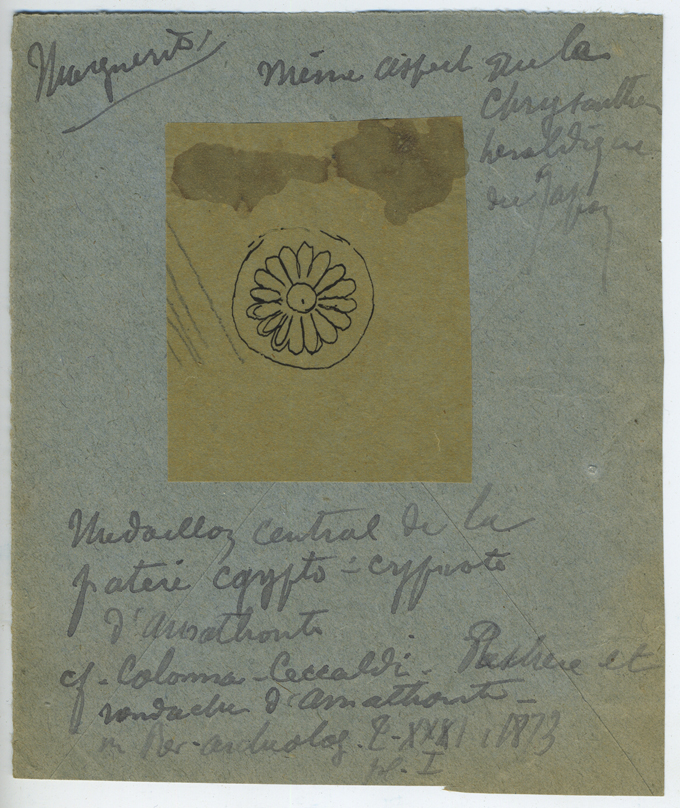 Marguerite
Même aspect que le
Chrysanthème
héraldique
du Japon
Medaillon central de la
patère egypto-cypriote
d'Amathonte
cf. Colonna-Ceccaldi. et
rondache d'Amathonte -
in Rev. archeolog. t. XXXI, 1873
pl. I